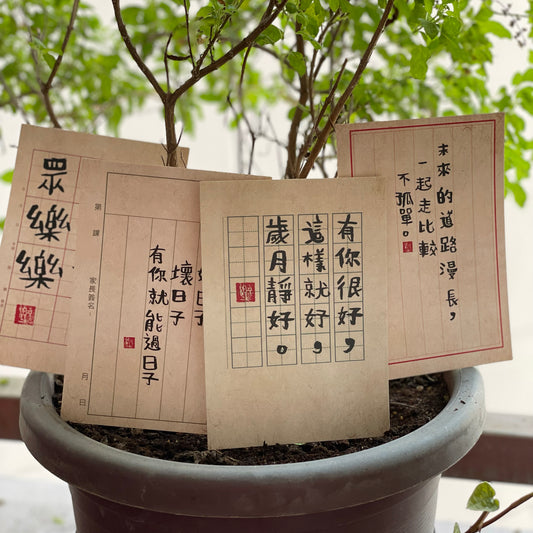 眾樂樂
日子
壞日子
有你就能過日子
第 課
家長義名
月 日
有你很好，
這樣就好，
歲月靜好。
未來的道路漫長，
一起走比較
不孤單。